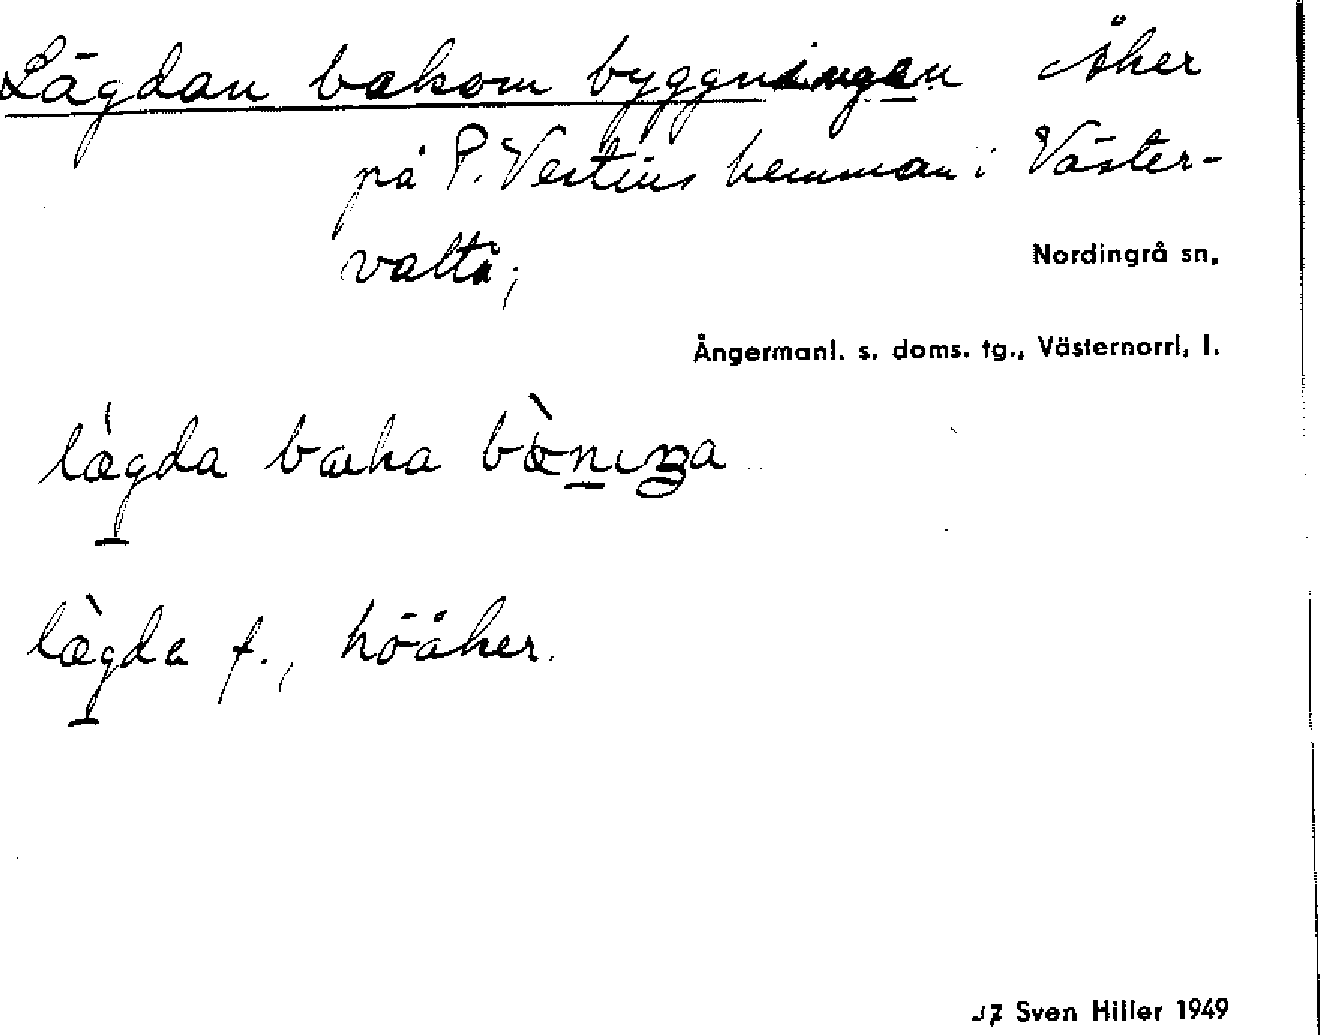 Lägdan bakom byggningen Åker
på P. Vestins hemman i Väster-
valto;
Nordingrå sn,
Ångermanl. s. doms. tg., Västernorrl. l.
lægda baka
lægda f., höåker.
J7 Sven Hiller 1949